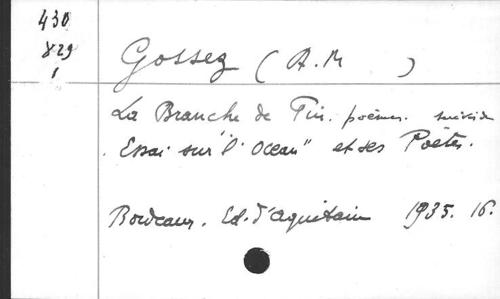 430
829
1
Gossez (A.M )
La Branche de Pin. poèmes. suivi de
Essai sur "l'Océan" et ses Poètes.
Bordeaux. Ed. d'Aquitain 1935. 16.